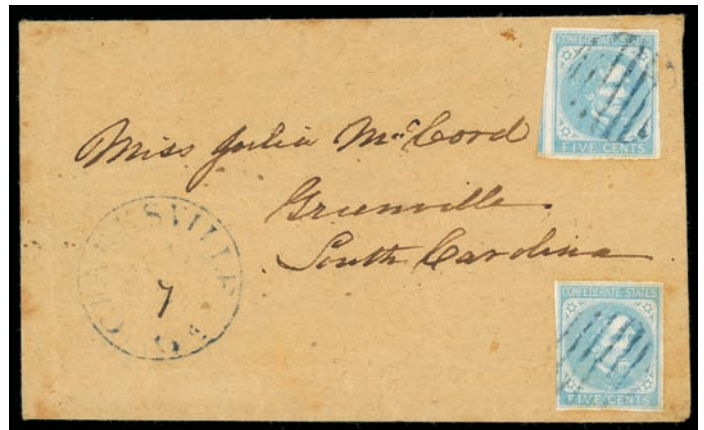 CONFEDERATE STATES
FIVE CENTS
Miss Julia McCord
Greenville
South Carolina
CLARKSVILLE
7
Ga
CONFEDERATE STATES
FIVE CENTS